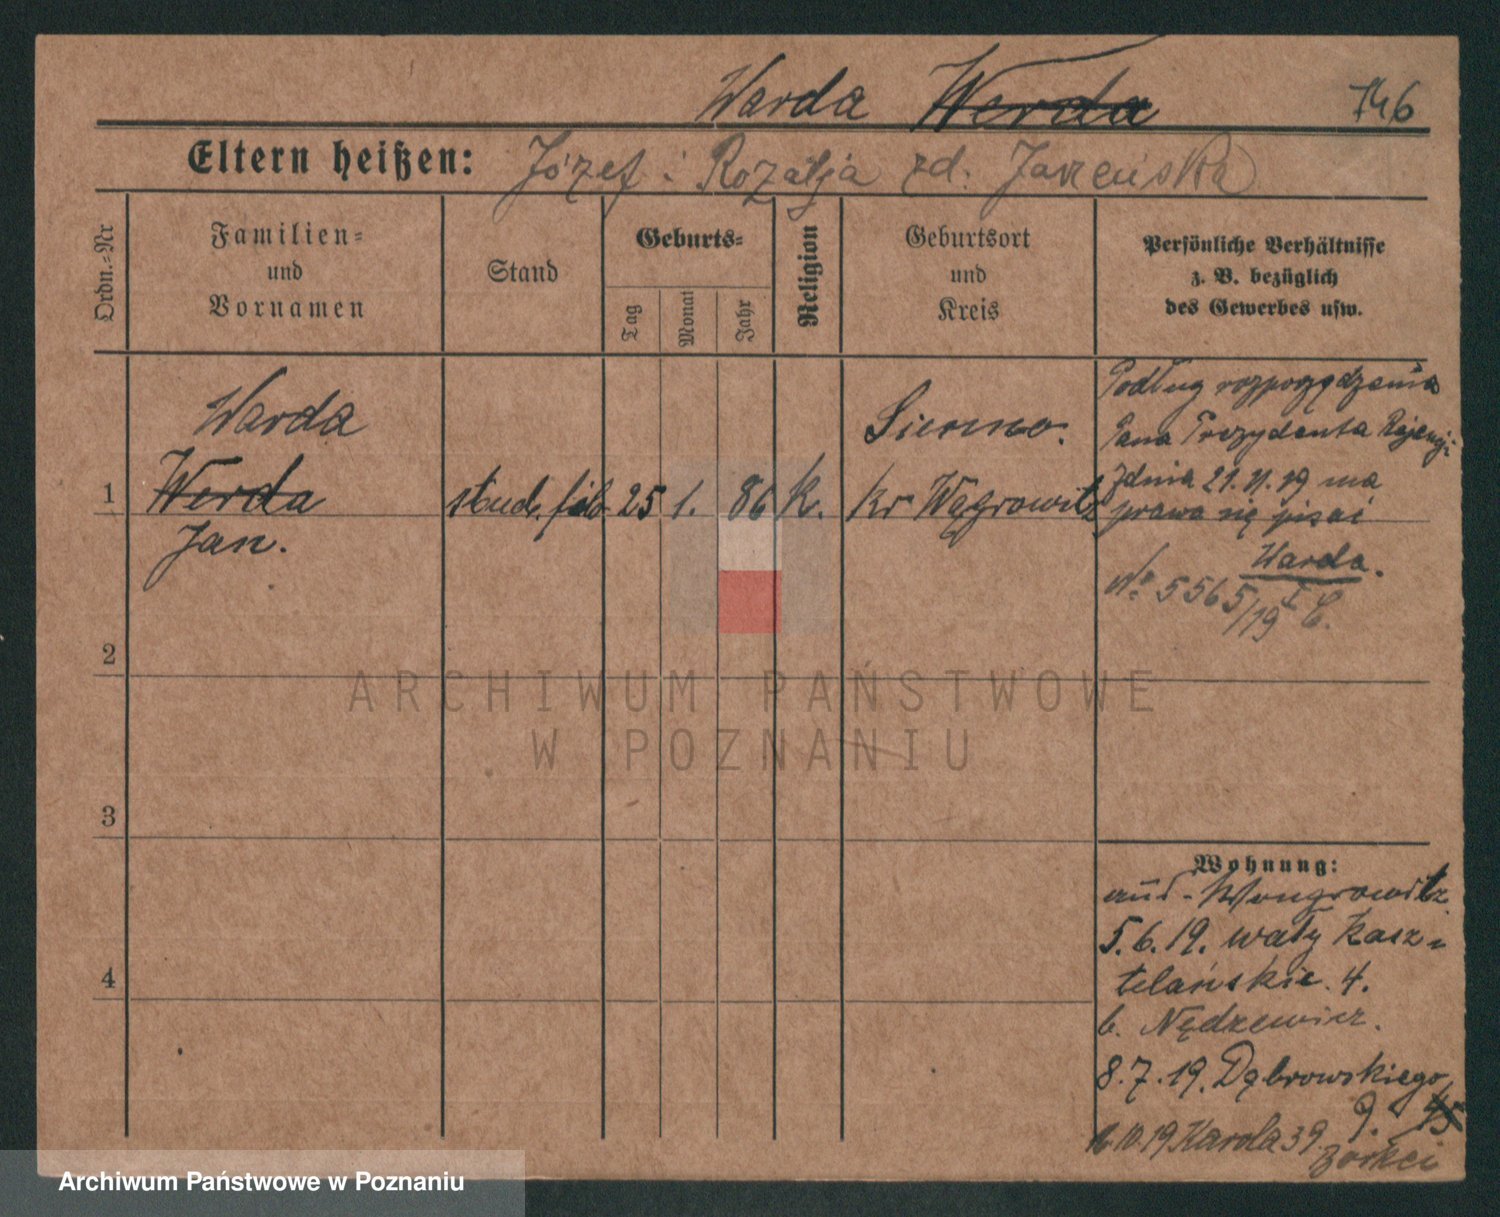 Warda Werda 746
Eltern heißen: Józef i Rozalja zd. Jarzeńska
Ordn.=Nr
Familien=
und
Vornamen
Stand
Geburts=
Tag
Monat
Jahr
Religion
Geburtsort
und
Kreis
Persönliche Verhältnisse
z. B. bezüglich
des Gewerbes usw.
Warda
1 Werda
Jan.
stud. fil. 25 1. 86 K.
Sienno.
Kr Wągrowitz
Podług rozporządzenia
Pana Prezydenta Rejencji
z dnia 21. 11. 19 ma
prawo się pisać
Warda.
No 5565/19 I C.
2
3
4
Wohnung:
aus Wongrowitz
5.6.19. wały Kasz-
telańskie 4.
b. Nędzewicz.
8.7.19. Dąbrowskiego
9. 45
10.19 Karola 39.
ARCHIWUM PAŃSTWOWE
W POZNANIU
Archiwum Państwowe w Poznaniu